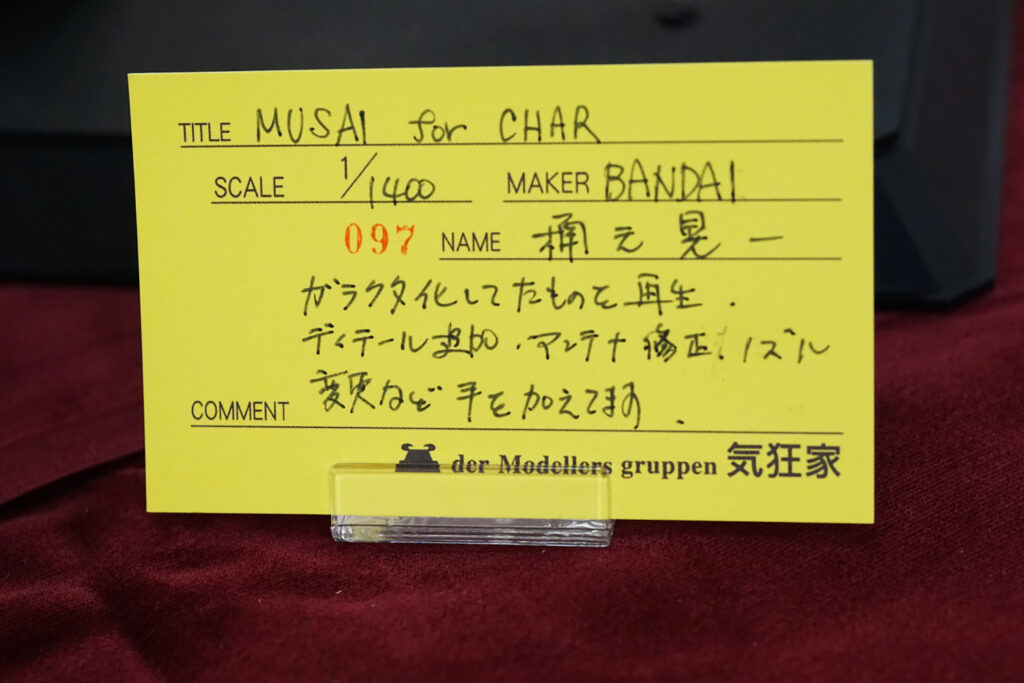 TITLE MUSAI for CHAR
SCALE 1/1400 MAKER BANDAI
097 NAME 桶元晃一
ガラクタ化してたものを再生.
ディテール追加.アンテナ修正.ノズル
COMMENT 変更など手を加えてます.
der Modellers gruppen 気狂家